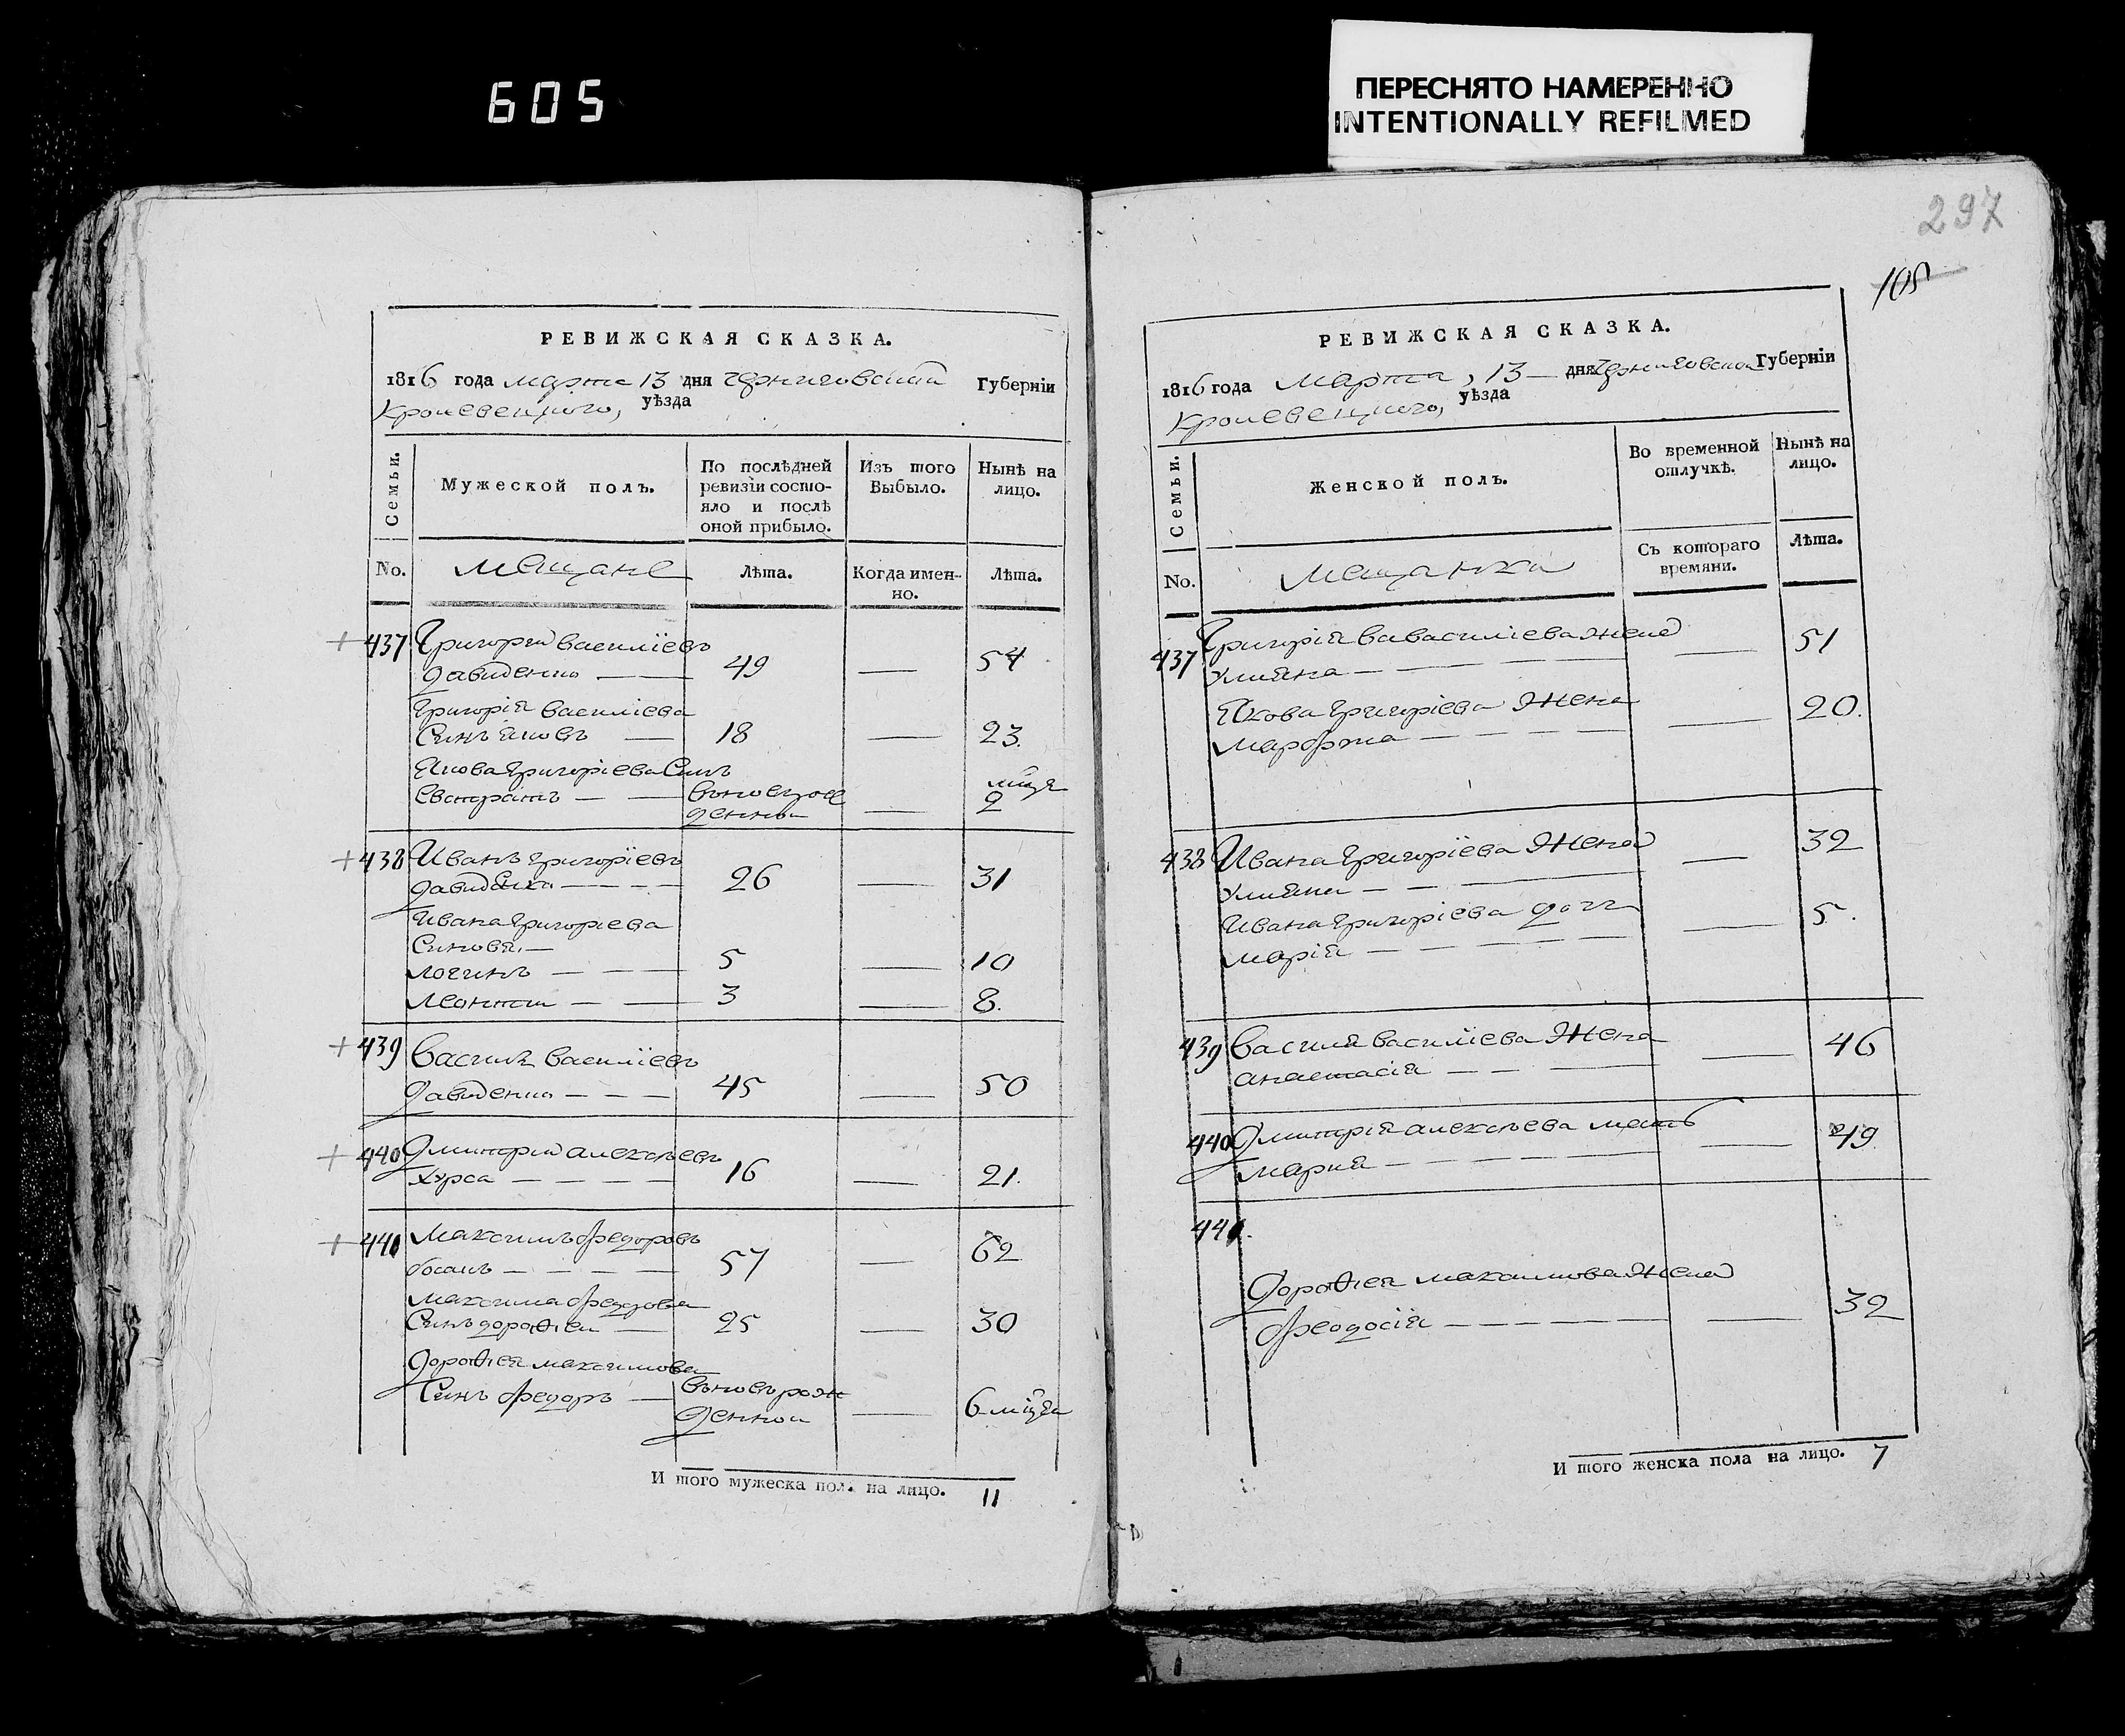 605
ПЕРЕСНЯТО НАМЕРЕННО
INTENTIONALLY REFILMED
297
105
РЕВИЖСКАЯ СКАЗКА.
1816 года марта 13 дня Черниговской Губерніи
Кролевецкого, уѣзда
Семьи.
Мужеской полъ.
По послѣдней
ревизіи состо-
яло и послѣ
оной прибыло.
Изъ того
Выбыло.
Нынѣ на
лицо.
No.
мещане
Лѣта.
Когда имен-
но.
Лѣта.
437 Григорій василіевъ
давиденко 49 54
Григорія василіева
Синъ яковъ 18 23.
Якова григоріева Синъ
Евстратъ вьновърож
денный мцъя
2
438 Иванъ григоріевъ
давиденко 26 31
Ивана григоріева
Синовя
логинъ 5 10
леонтій 3 8.
439 Василь василіевъ
давиденко 45 50
440 Дмитрій алексѣевъ
хурса 16 21.
441 Максимъ федоровъ
57 62
максима федорова
Синъ дорофей 25 30
дорофея максимова
Синъ федоръ вьновърож
денной 6 мцъя
И того мужеска пол. на лицо. 11
РЕВИЖСКАЯ СКАЗКА.
1816 года марта, 13 дня Черниговской Губерніи
Кролевецкого, уѣзда
Семьи.
Женской полъ.
Во временной
отлучкѣ.
Нынѣ на
лицо.
No.
мещанки
Съ котораго
времяни.
Лѣта.
437 Григорія василіева жена
улияна 51
Якова григоріева жена
марфа 20.
438 Ивана григоріева жена
улияна 32
Ивана григоріева дочь
марія 5.
439 Василя василіева жена
анастасія 46
440 Дмитрія алексѣева мать
мария 49
441.
дорофея максимова жена
феодосія 32
И того женска пола на лицо. 7